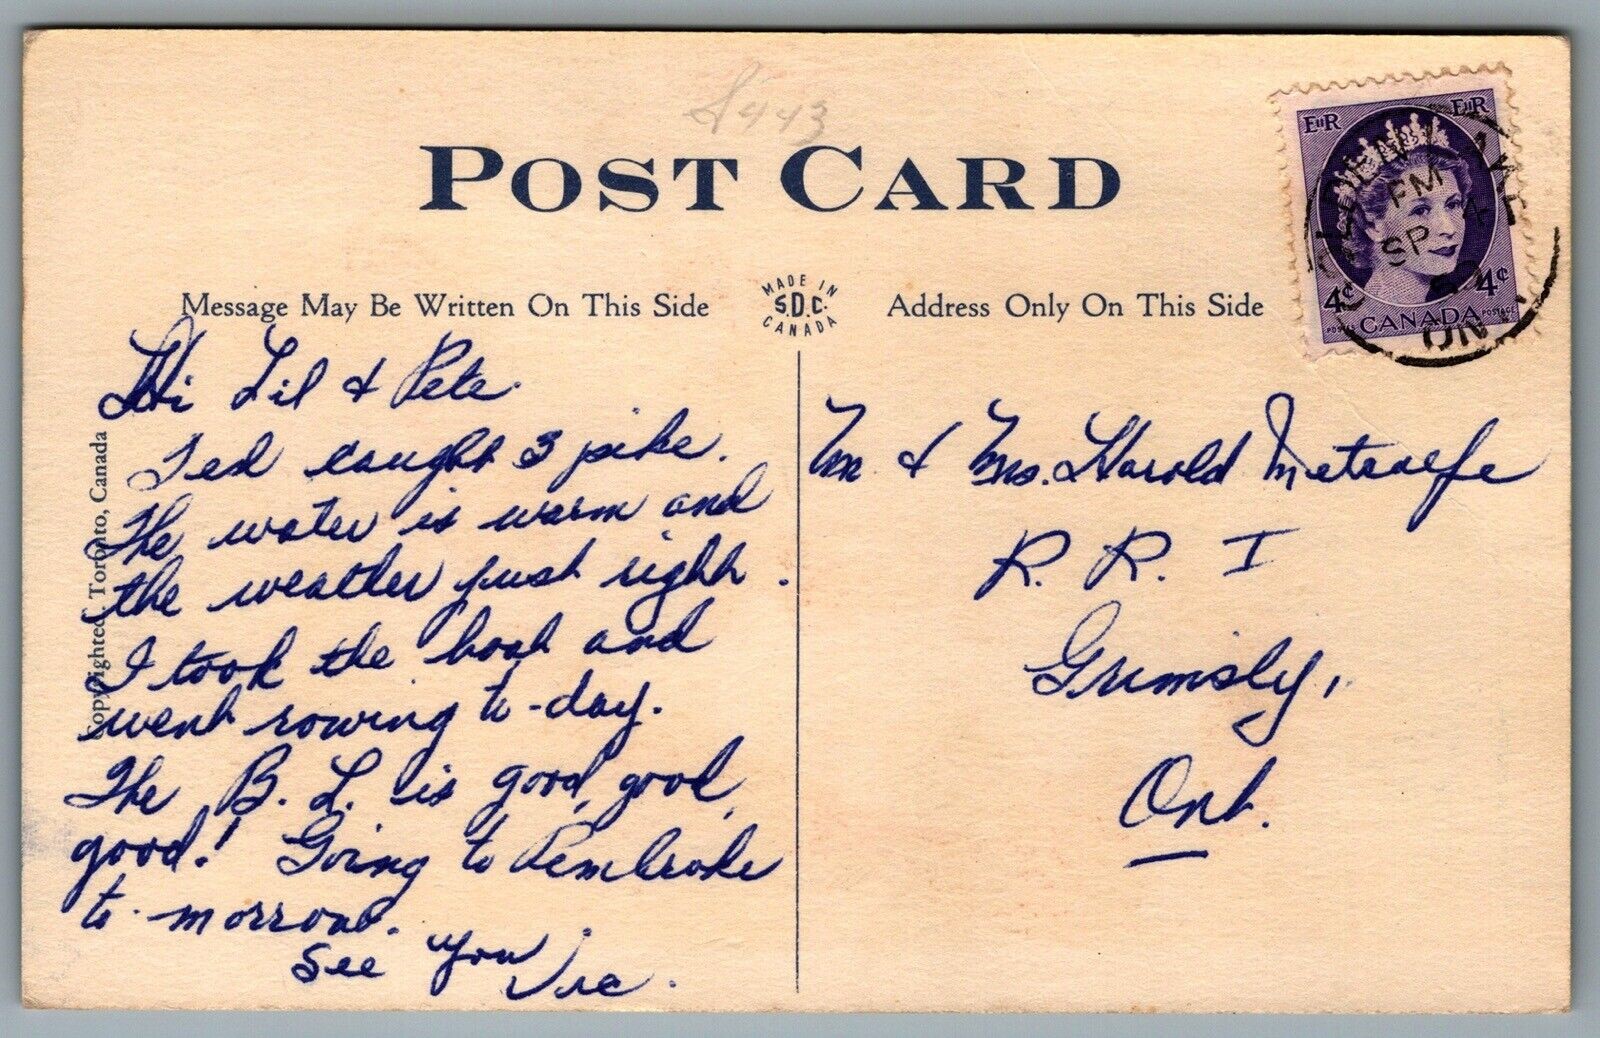 8443
POST CARD
Message May Be Written On This Side
MADE IN
S.D.C.
CANADA
Address Only On This Side
EIIR EIIR
4¢ 4¢
POSTES CANADA POSTAGE
GOLDEN LAKE
PM
SP 4
ONT.
Copyrighted, Toronto, Canada
Hi Lil & Pete.
Ted caught 3 pike.
The water is warm and
the weather just right.
I took the boat and
went rowing to-day.
The B. L. is good, good,
good! Going to Pembroke
to-morrow.
See you
Vic.
Mr. & Mrs. Harold Metcalfe
R. R. I
Grimsly,
Ont.